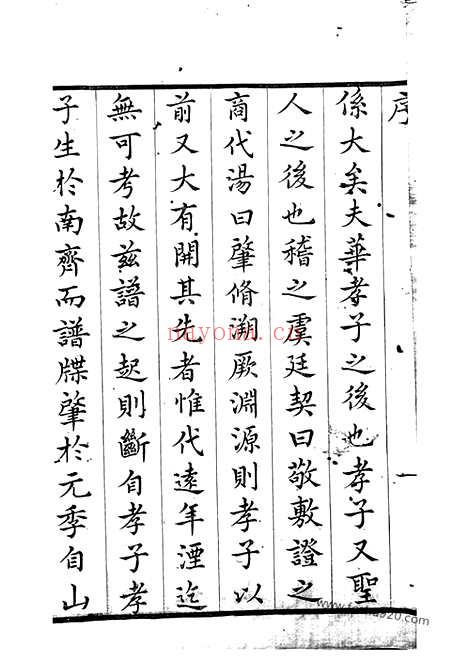 序
係大矣夫華孝子之後也孝子又聖
人之後也稽之虞廷契曰敬敷證之
商代湯曰肇脩溯厥淵源則孝子以
前又大有開其先者惟代遠年湮迄
無可考故茲譜之起則斷自孝子孝
子生於南齊而譜牒肇於元季自山
nayona.cn